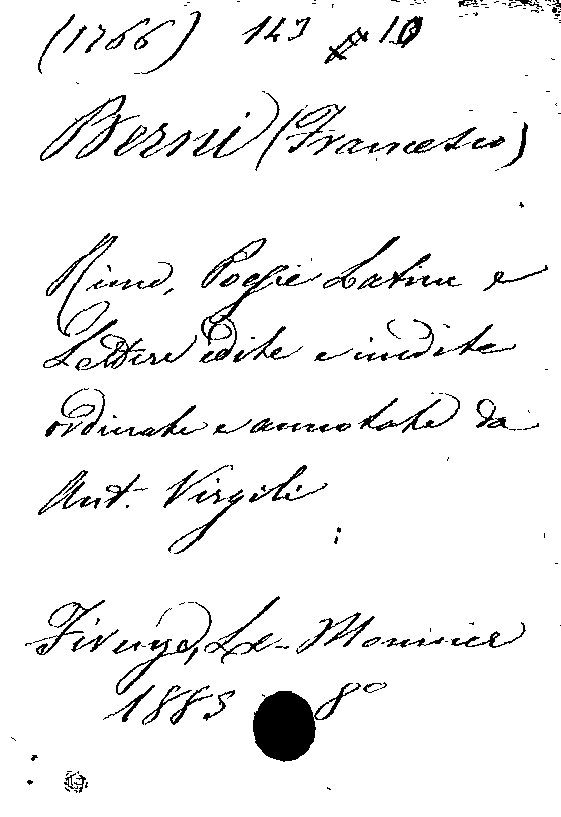 (1766) 143 10
Berni (Francesco)
Rime, Poesie Latine e
Lettere edite e inedite
ordinate e annotate da
Ant. Virgili
Firenze, Le-Monnier
1885 8º